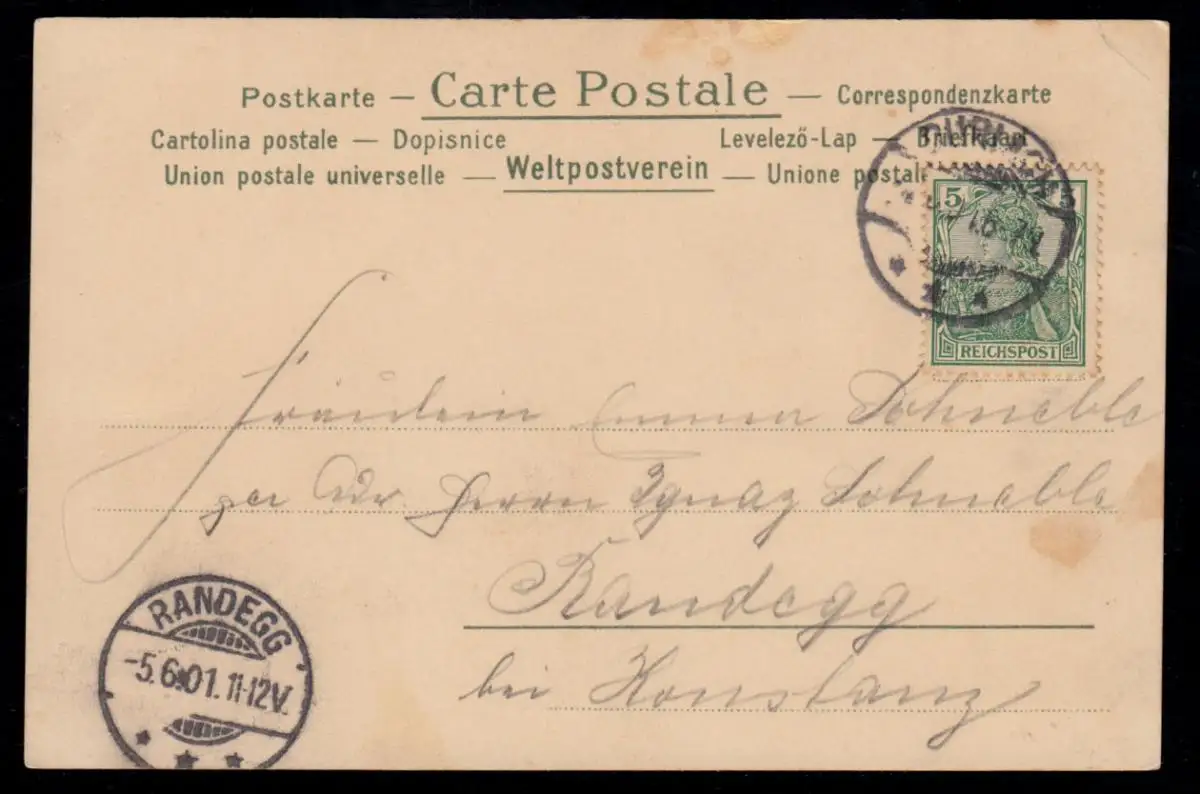 Postkarte — Carte Postale — Correspondenzkarte
Cartolina postale — Dopisnice Levelező-Lap — Briefkaart
Union postale universelle — Weltpostverein — Unione postale
5
REICHSPOST
Fräulein Emma Schneble
per Adr. Herrn Ignaz Schneble
Randegg
bei Konstanz
RANDEGG
-5.6.01.11-12V.